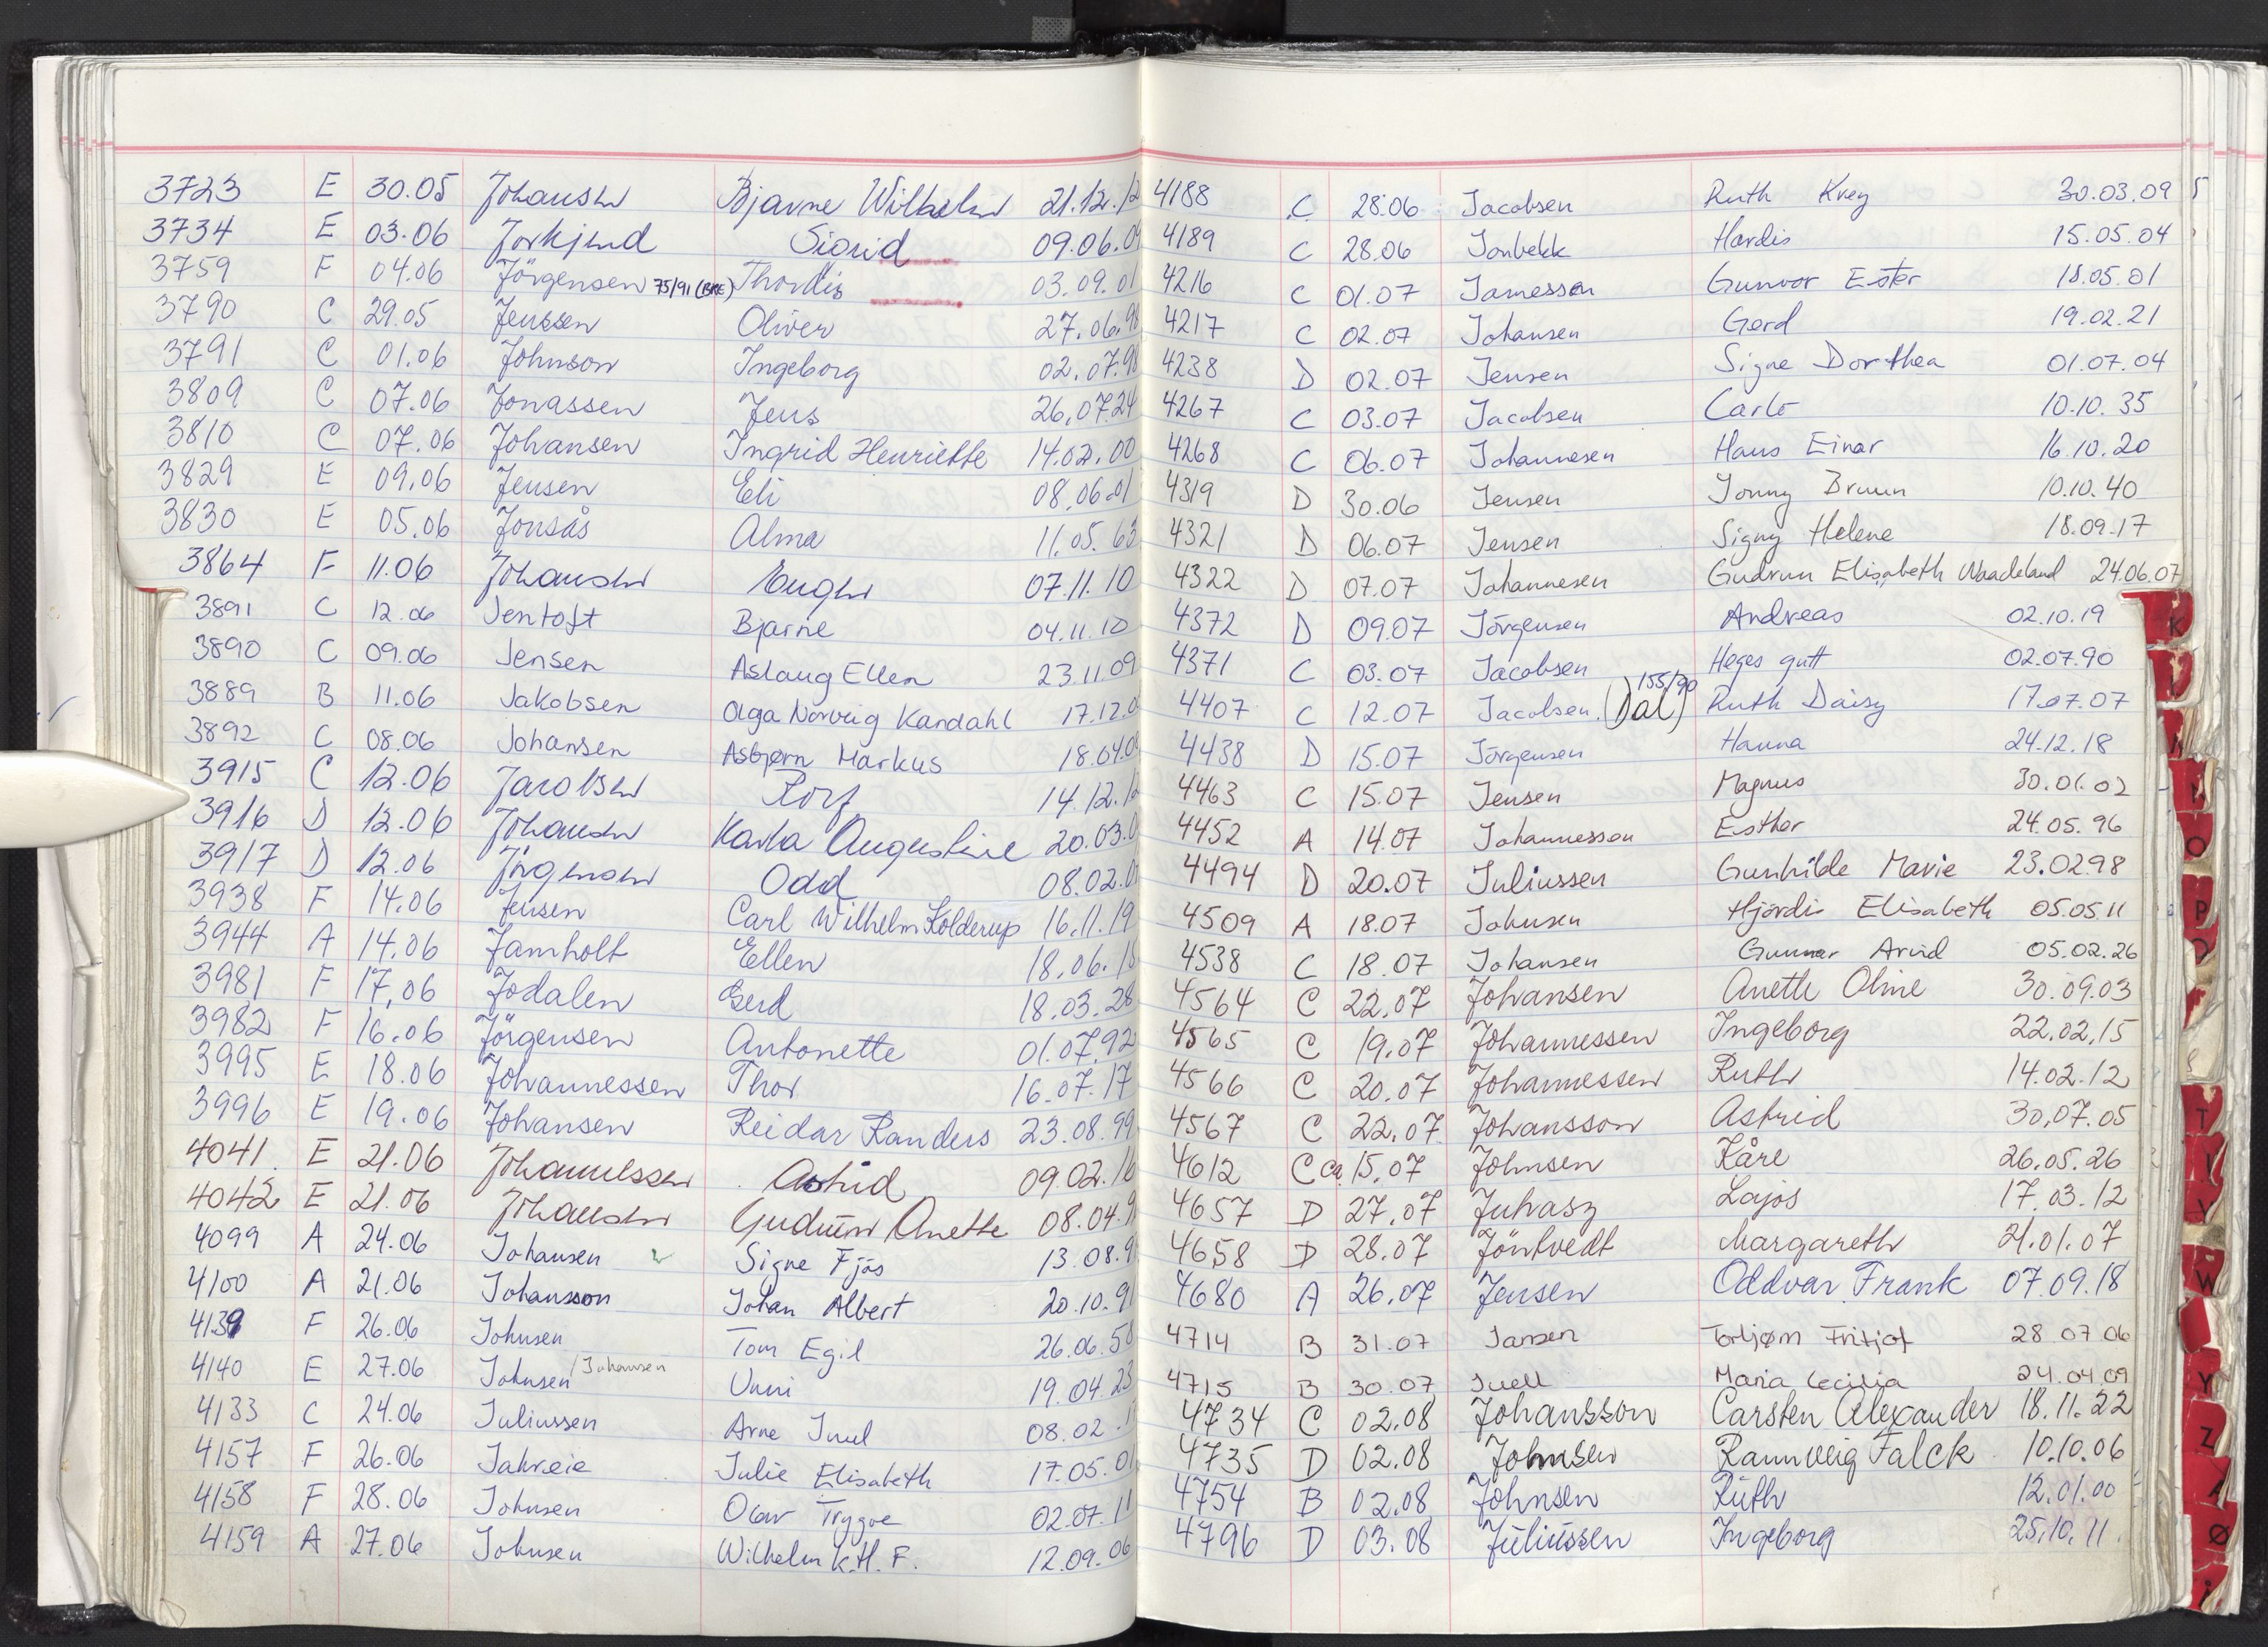 3723 E 30.05 Johansen Bjarne Wilhelm 21.12.12
3734 E 03.06 Jorkjend Sigrid 09.06.09
3759 F 04.06 Jörgensen 75/91 (BRE) Thordis 03.09.01
3790 C 29.05 Jenssen Oliver 27.06.98
3791 C 01.06 Johnson Ingeborg 02.07.98
3809 C 07.06 Jonassen Jens 26.07.24
3810 C 07.06 Johansen Ingrid Henriette 14.02.00
3829 E 09.06 Jensen Eli 08.06.01
3830 E 05.06 Jonsås Alma 11.05.63
3864 F 11.06 Johansen 07.11.10
3891 C 12.06 Jentoft Bjarne 04.11.10
3890 C 09.06 Jensen Aslaug Ellen 23.11.09
3889 B 11.06 Jakobsen Olga Norvig Kandahl 17.12.0
3892 C 08.06 Johansen Asbjørn Markus 18.04.0
3915 C 12.06 Jacobsen Rolf 14.12.12
3916 D 12.06 Johansen Karla Augustine 20.03.0
3917 D 12.06 Jörgensen Odd 08.02.0
3938 F 14.06 Jensen Carl Wilhelm Kolderup 16.11.19
3944 A 14.06 Jamholt Ellen 18.06.15
3981 F 17.06 Jodalen Gerd 18.03.28
3982 F 16.06 Jörgensen Antonette 01.07.92
3995 E 18.06 Johannessen Thor 16.07.17
3996 E 19.06 Johansen Reidar Randers 23.08.99
4041 E 21.06 Johannessen Astrid 09.02.16
4042 E 21.06 Johansen Gudrun Anette 08.04.9
4099 A 24.06 Johansen Signe Fjøs 13.08.9
4100 A 21.06 Johansson Johan Albert 20.10.91
4139 F 26.06 Johnsen Tom Egil 26.06.50
4140 E 27.06 Johnsen /Johansen Unni 19.04.23
4133 C 24.06 Juliussen Arne Juul 08.02.1
4157 F 26.06 Jahreie Julie Elisabeth 17.05.01
4158 F 28.06 Johnsen Olav Trygve 02.07.11
4159 A 27.06 Johnsen Wilhelm K.H.F. 12.09.06
4188 C 28.06 Jacobsen Ruth Krey 30.03.09
4189 C 28.06 Jonbekk Hardis 15.05.04
4216 C 01.07 Jamessen Gunvor Ester 18.05.01
4217 C 02.07 Johansen Gerd 19.02.21
4238 D 02.07 Jensen Signe Dorthea 01.07.04
4267 C 03.07 Jacobsen Carlo 10.10.35
4268 C 06.07 Johannesen Hans Einar 16.10.20
4319 D 30.06 Jensen Jonny Bruun 10.10.40
4321 D 06.07 Jensen Signy Helene 18.09.17
4322 D 07.07 Johannesen Gudrun Elisabeth Waadeland 24.06.07
4372 D 09.07 Jörgensen Andreas 02.10.19
4371 C 03.07 Jacobsen Heges gutt 02.07.90
4407 C 12.07 Jacobsen (Dal) 155/90 Ruth Daisy 17.07.07
4438 D 15.07 Jörgensen Hanna 24.12.18
4463 C 15.07 Jensen Magnus 30.01.02
4452 A 14.07 Johannesson Esther 24.05.96
4494 D 20.07 Juliussen Gunhilde Marie 23.02.98
4509 A 18.07 Johnsen Hjördis Elisabeth 05.05.11
4538 C 18.07 Johansen Gunnar Arvid 05.02.26
4564 C 22.07 Johansen Anette Oline 30.09.03
4565 C 19.07 Johannessen Ingeborg 22.02.15
4566 C 20.07 Johannessen Ruth 14.02.12
4567 C 22.07 Johansson Astrid 30.07.05
4612 C ca. 15.07 Johnsen Kåre 26.05.26
4657 D 27.07 Juhasz Lajos 17.03.12
4658 D 28.07 Jöntvedt Margareth 21.01.07
4680 A 26.07 Jensen Oddvar Frank 07.09.18
4714 B 31.07 Jansen Torbjørn Fritjof 28.07.06
4715 B 30.07 Juell Maria Cecilia 24.04.09
4734 C 02.08 Johansson Carsten Alexander 18.11.22
4735 D 02.08 Johnsen Rannveig Falck 10.10.06
4754 B 02.08 Johnsen Ruth 12.01.00
4796 D 03.08 Juliussen Ingeborg 25.10.11
K
O
P
T
V
W
Y
Z
Ø